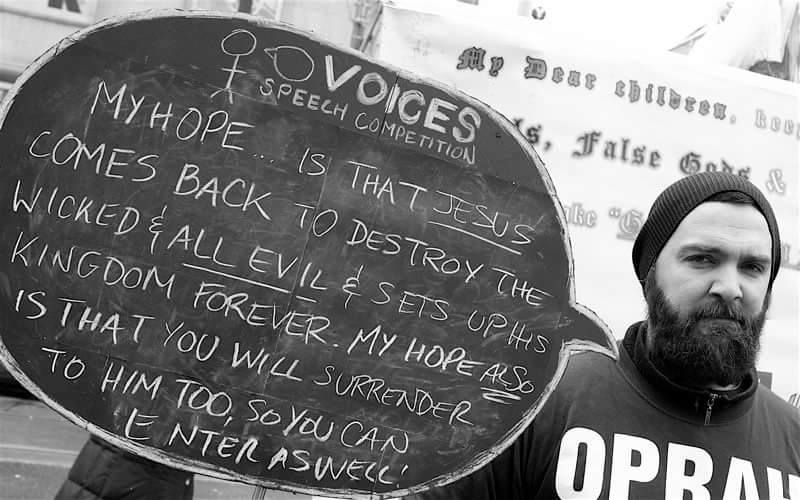 VOICES
SPEECH COMPETITION
MY HOPE... IS THAT JESUS
COMES BACK TO DESTROY THE
WICKED & ALL EVIL & SETS UP HIS
KINGDOM FOREVER. MY HOPE ALSO
IS THAT YOU WILL SURRENDER
TO HIM TOO, SO YOU CAN
ENTER AS WELL!
My Dear children, keep
False Gods &
OPRAH